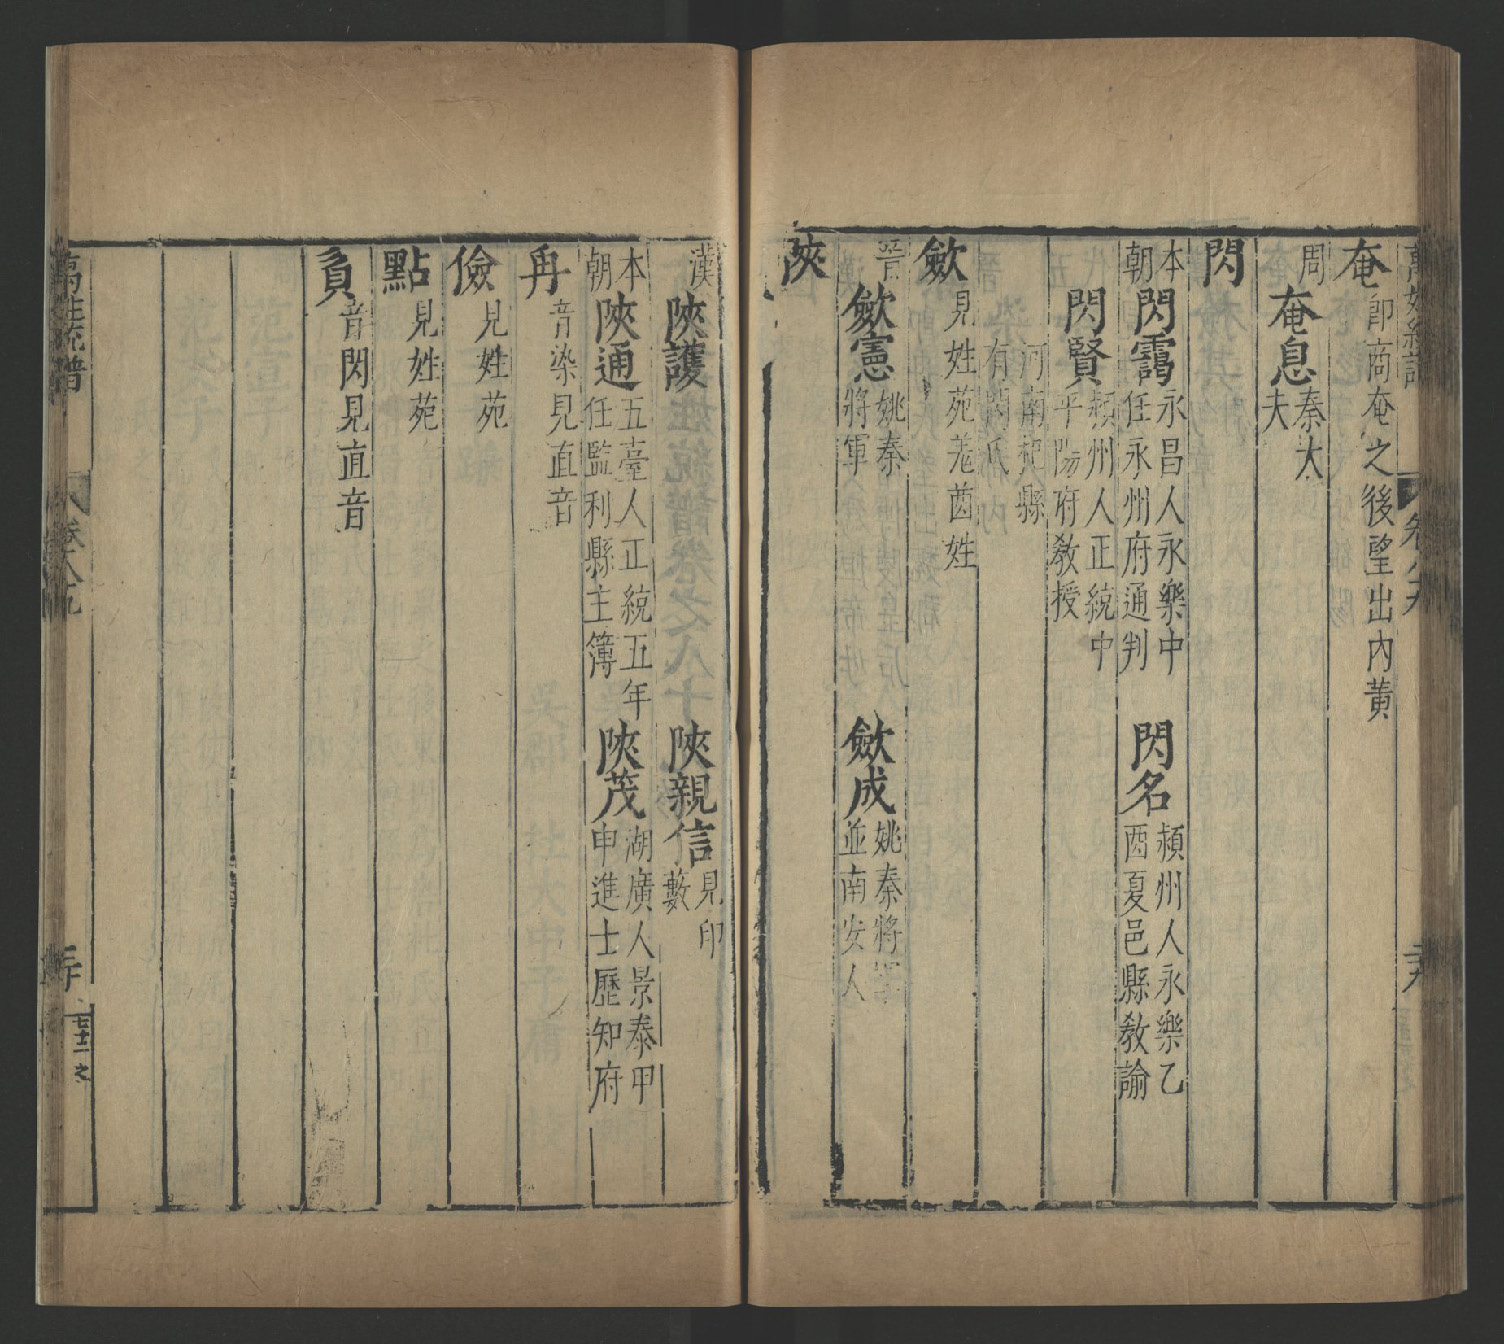 奄即商奄之後望出內黃
周
奄息秦大
夫
閃
本
朝
閃靄永昌人永樂中
任永州府通判
閃名潁州人永樂乙
酉夏邑縣教諭
閃賢潁州人正統中
平陽府教授
河南杞縣
有閃氏
歛見姓苑羌酋姓
晉
歛憲姚秦
將軍
歛成姚秦將軍
並南安人
陜
漢
陜護
陜親信見印
藪
本
朝
陜通五臺人正統五年
任監利縣主簿
陜茂湖廣人景泰甲
申進士歷知府
冉音染見直音
儉見姓苑
點見姓苑
䝱音閃見直音
萬姓統譜
卷八九
三十